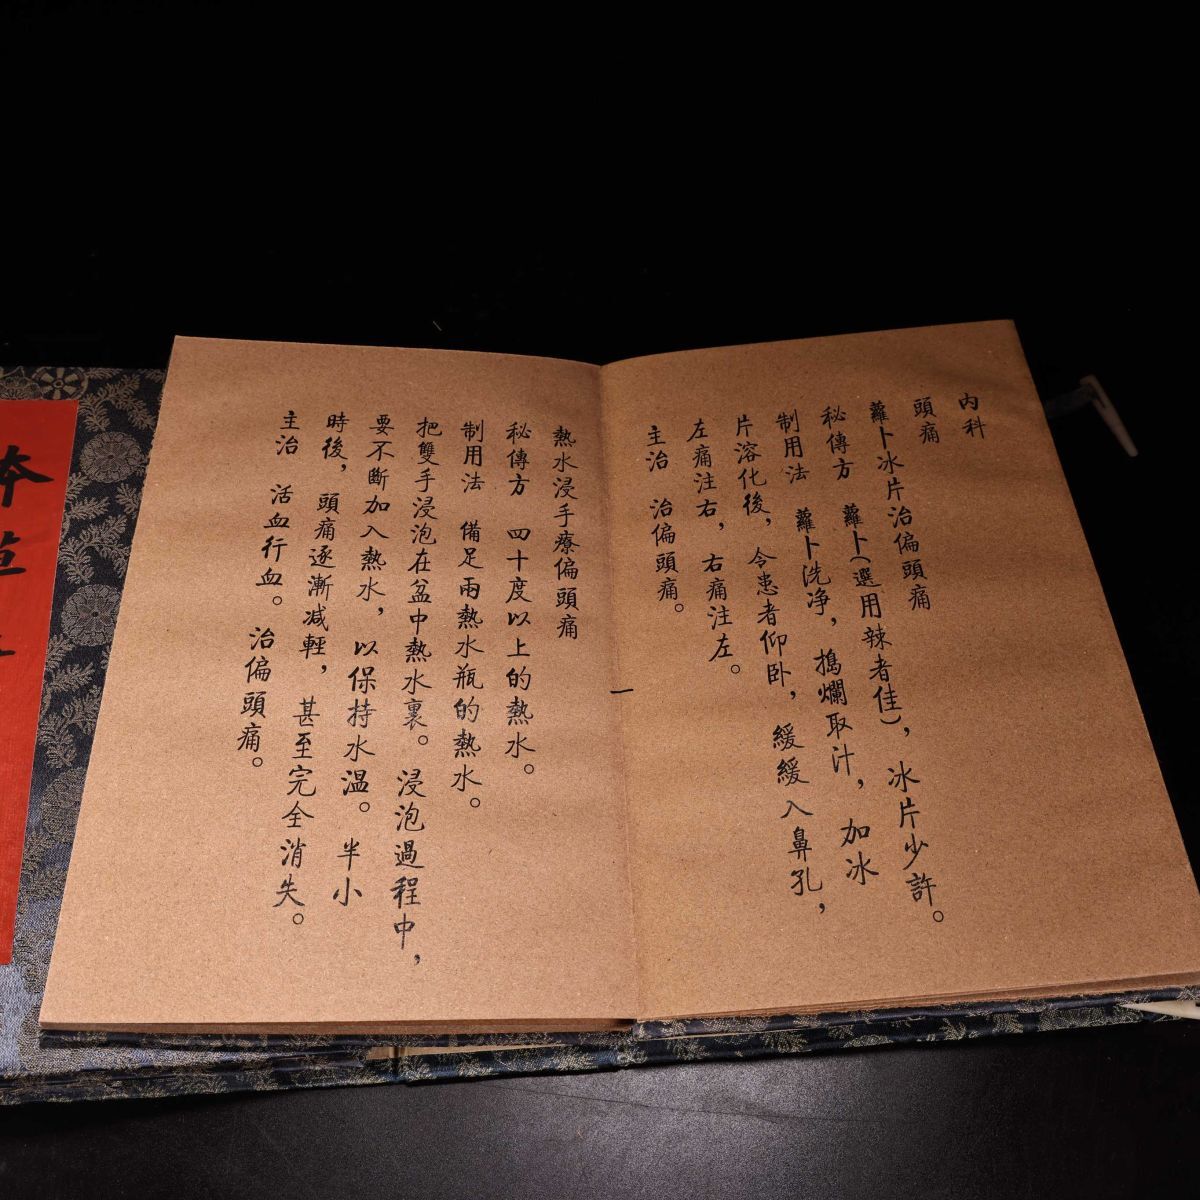 内科
頭痛
蘿卜冰片治偏頭痛
秘傳方　蘿卜(選用辣者佳)，冰片少許。
制用法　蘿卜洗净，搗爛取汁，加冰
片溶化後，令患者仰卧，緩緩入鼻孔，
左痛注右，右痛注左。
主治　治偏頭痛。
一
熱水浸手療偏頭痛
秘傳方　四十度以上的熱水。
制用法　備足兩熱水瓶的熱水。
把雙手浸泡在盆中熱水裏。浸泡過程中，
要不斷加入熱水，以保持水温。半小
時後，頭痛逐漸减輕，甚至完全消失。
主治　活血行血。治偏頭痛。
本草